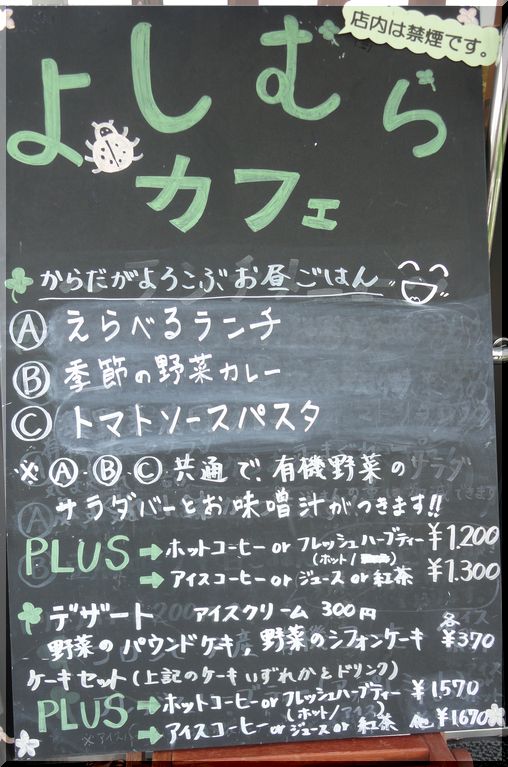 店内は禁煙です。
よしむら
カフェ
からだがよろこぶお昼ごはん
Ⓐ えらべるランチ
Ⓑ 季節の野菜カレー
Ⓒ トマトソースパスタ
※Ⓐ・Ⓑ・Ⓒ共通で、有機野菜の
サラダバーとお味噌汁がつきます!!
PLUS
➡ホットコーヒー or フレッシュハーブティー ¥1.200
(ホット/
➡アイスコーヒー or ジュース or 紅茶 ¥1.300
デザート アイスクリーム 300円 各
野菜のパウンドケーキ,野菜のシフォンケーキ ¥370
ケーキセット(上記のケーキいずれかとドリンク)
PLUS
➡ホットコーヒー or フレッシュハーブティー ¥1570
(ホット/アイス)
➡アイスコーヒー or ジュース or 紅茶 他 ¥1670